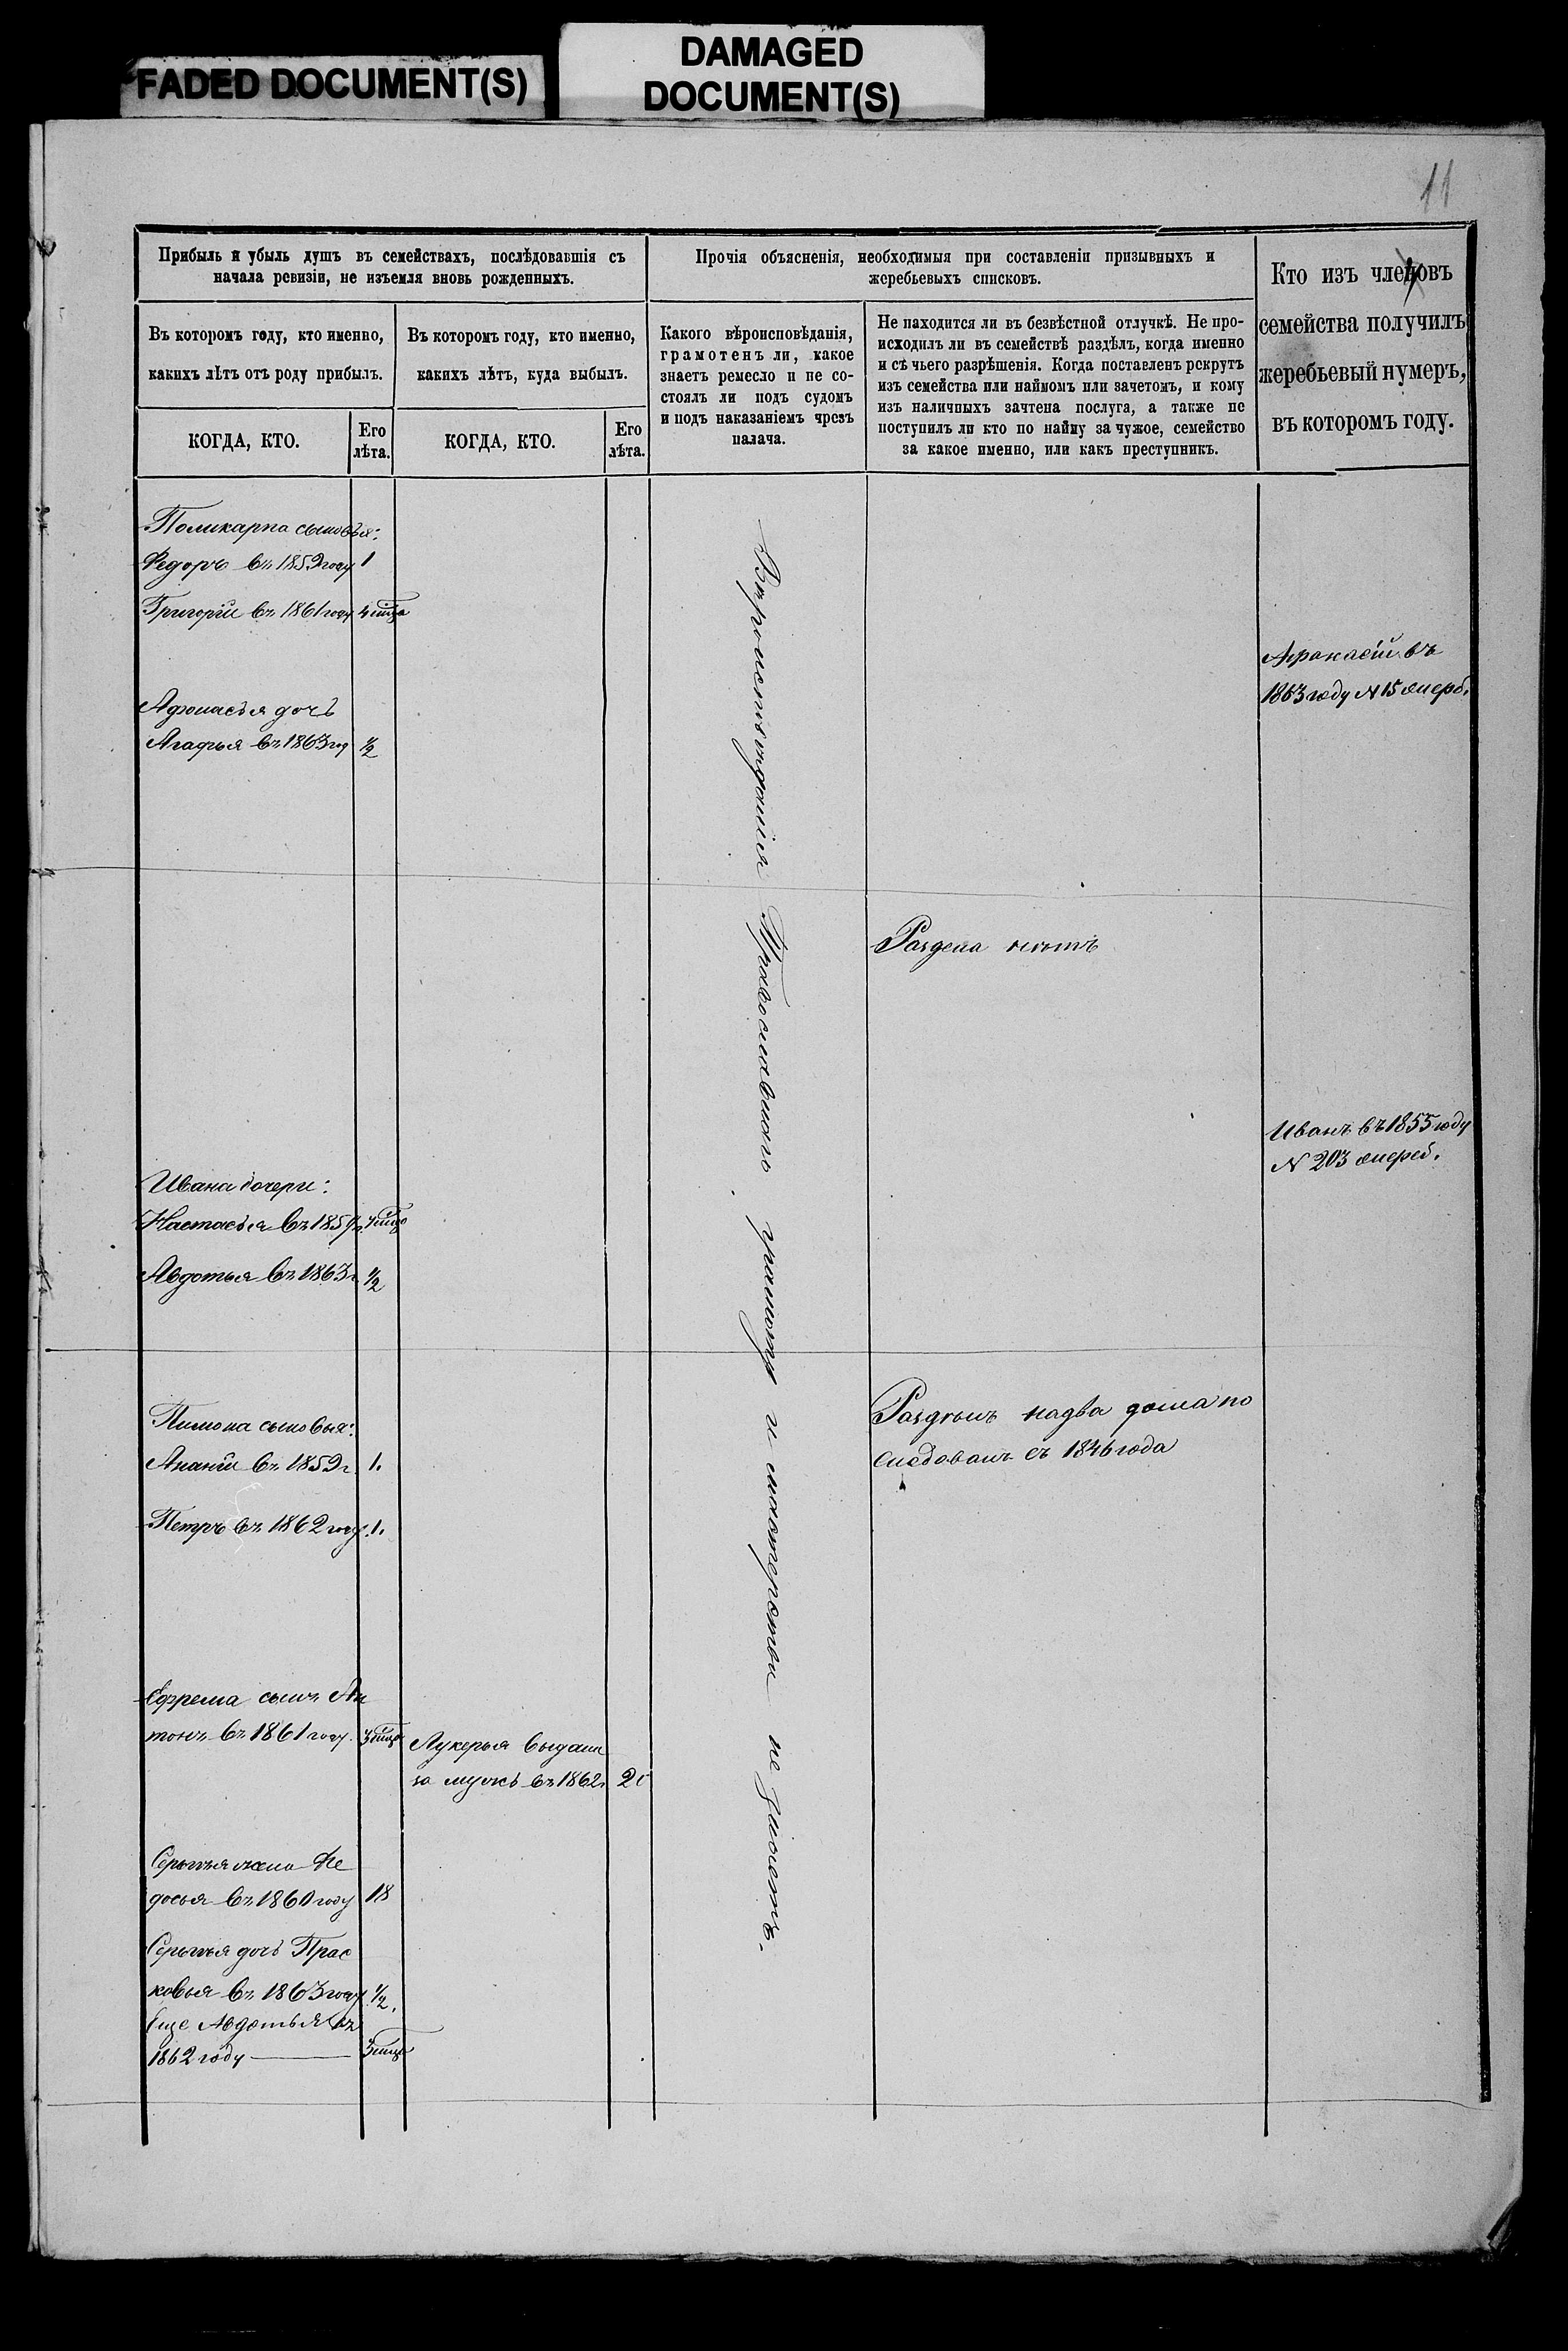 FADED DOCUMENT(S)
DAMAGED
DOCUMENT(S)
11
Прибыль и убыль душъ въ семействахъ, послѣдовавшія съ
начала ревизіи, не изъемля вновь рожденныхъ.
Въ которомъ году, кто именно,
какихъ лѣтъ отъ роду прибылъ.
КОГДА, КТО.
Его
лѣта.
Въ которомъ году, кто именно,
какихъ лѣтъ, куда выбылъ.
КОГДА, КТО.
Его
лѣта.
Прочія объясненія, необходимыя при составленіи призывныхъ и
жеребьевыхъ списковъ.
Какого вѣроисповѣданія,
грамотенъ ли, какое
знаетъ ремесло и не со-
стоялъ ли подъ судомъ
и подъ наказаніемъ чрезъ
палача.
Не находится ли въ безвѣстной отлучкѣ. Не про-
исходилъ ли въ семействѣ раздѣлъ, когда именно
и съ чьего разрѣшенія. Когда поставленъ рекрутъ
изъ семейства или наймомъ или зачетомъ, и кому
изъ наличныхъ зачтена послуга, а также не
поступилъ ли кто по найму за чужое, семейство
за какое именно, или какъ преступникъ.
Кто изъ членовъ
семейства получилъ
жеребьевый нумеръ,
въ которомъ году.
Поликарпа сыновья:
Федоръ въ 1859 году 1
Григорій въ 1861 году
Афонасья дочь
Агафья въ 1863 год 1/2
Афанасій въ
1863 году N 15 жереб.
Раздела нетъ
Иванъ въ 1855 году
N 203 жереб.
Ивана дочери:
Настасья въ 1859 г.
Авдотья въ 1863 г 1/2
Пимона сыновья:
Ананій въ 1859 г. 1.
Петръ въ 1862 году. 1.
на два дома по
съ 1846 года
Ефрема сынъ Ан
тонъ въ 1861 году.
Лукерья выдана
за мужъ въ 1862 г 20
Сергѣя жена Фе
досья въ 1860 году 18
Сергѣя дочь Прас
ковья въ 1863 году 1/2.
Еще Авдотья въ
1862 году
Вероисповѣданія Православнаго грамоты и мастерства не знаютъ.